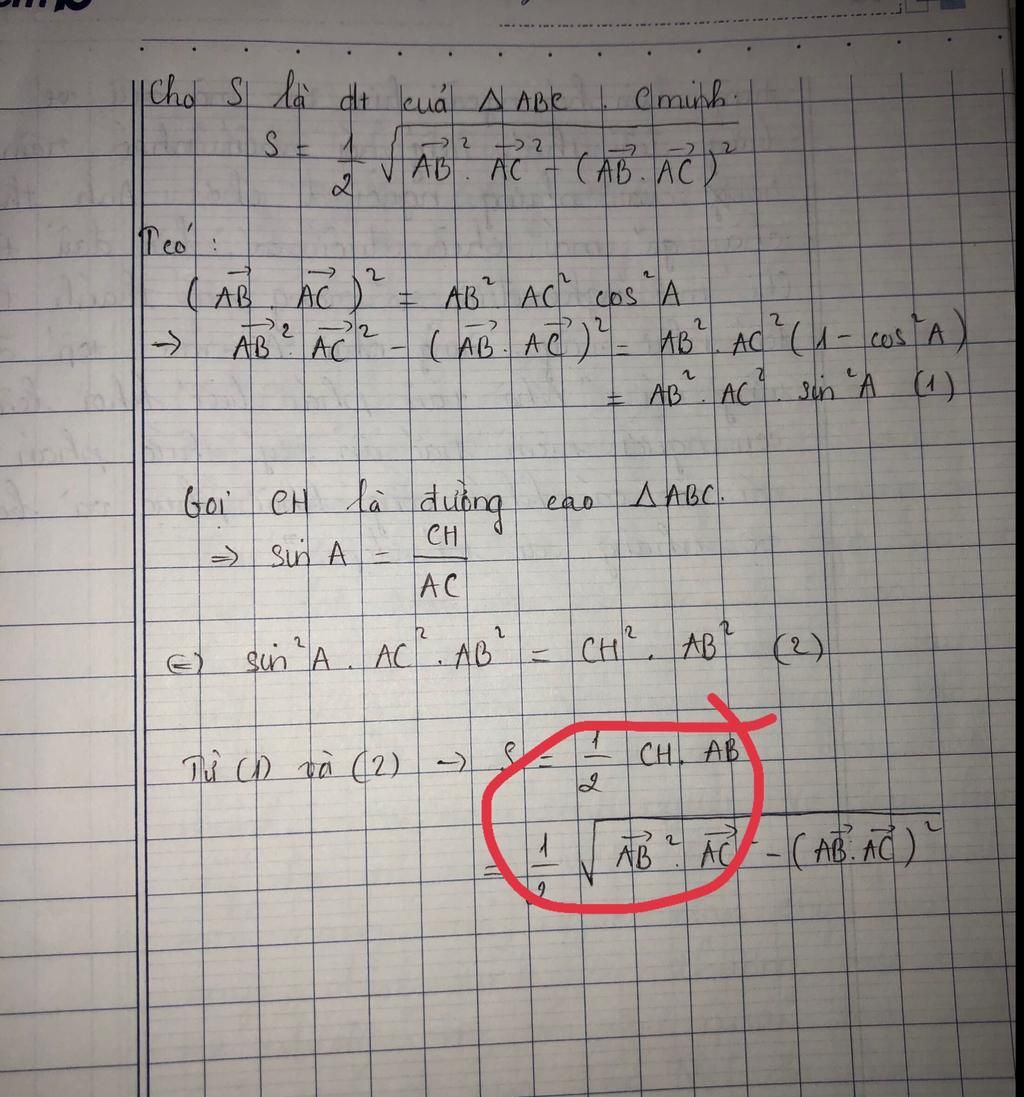 Cho S là dt của Δ ABC. Cminh.
S = 1/2 √(AB⃗² . AC⃗² - (AB⃗ . AC⃗)²)
Tcó :
(AB⃗ . AC⃗)² = AB² AC² cos²A
→ AB⃗² . AC⃗² - (AB⃗ . AC⃗)² = AB² . AC² (1 - cos²A)
= AB² . AC² . sin²A (1)
Gọi CH là đường cao ΔABC.
⇒ sin A = CH/AC
⇔ sin²A . AC² . AB² = CH² . AB² (2)
Từ (1) và (2) → S = 1/2 CH . AB
= 1/2 √(AB⃗² . AC⃗² - (AB⃗ . AC⃗)²)